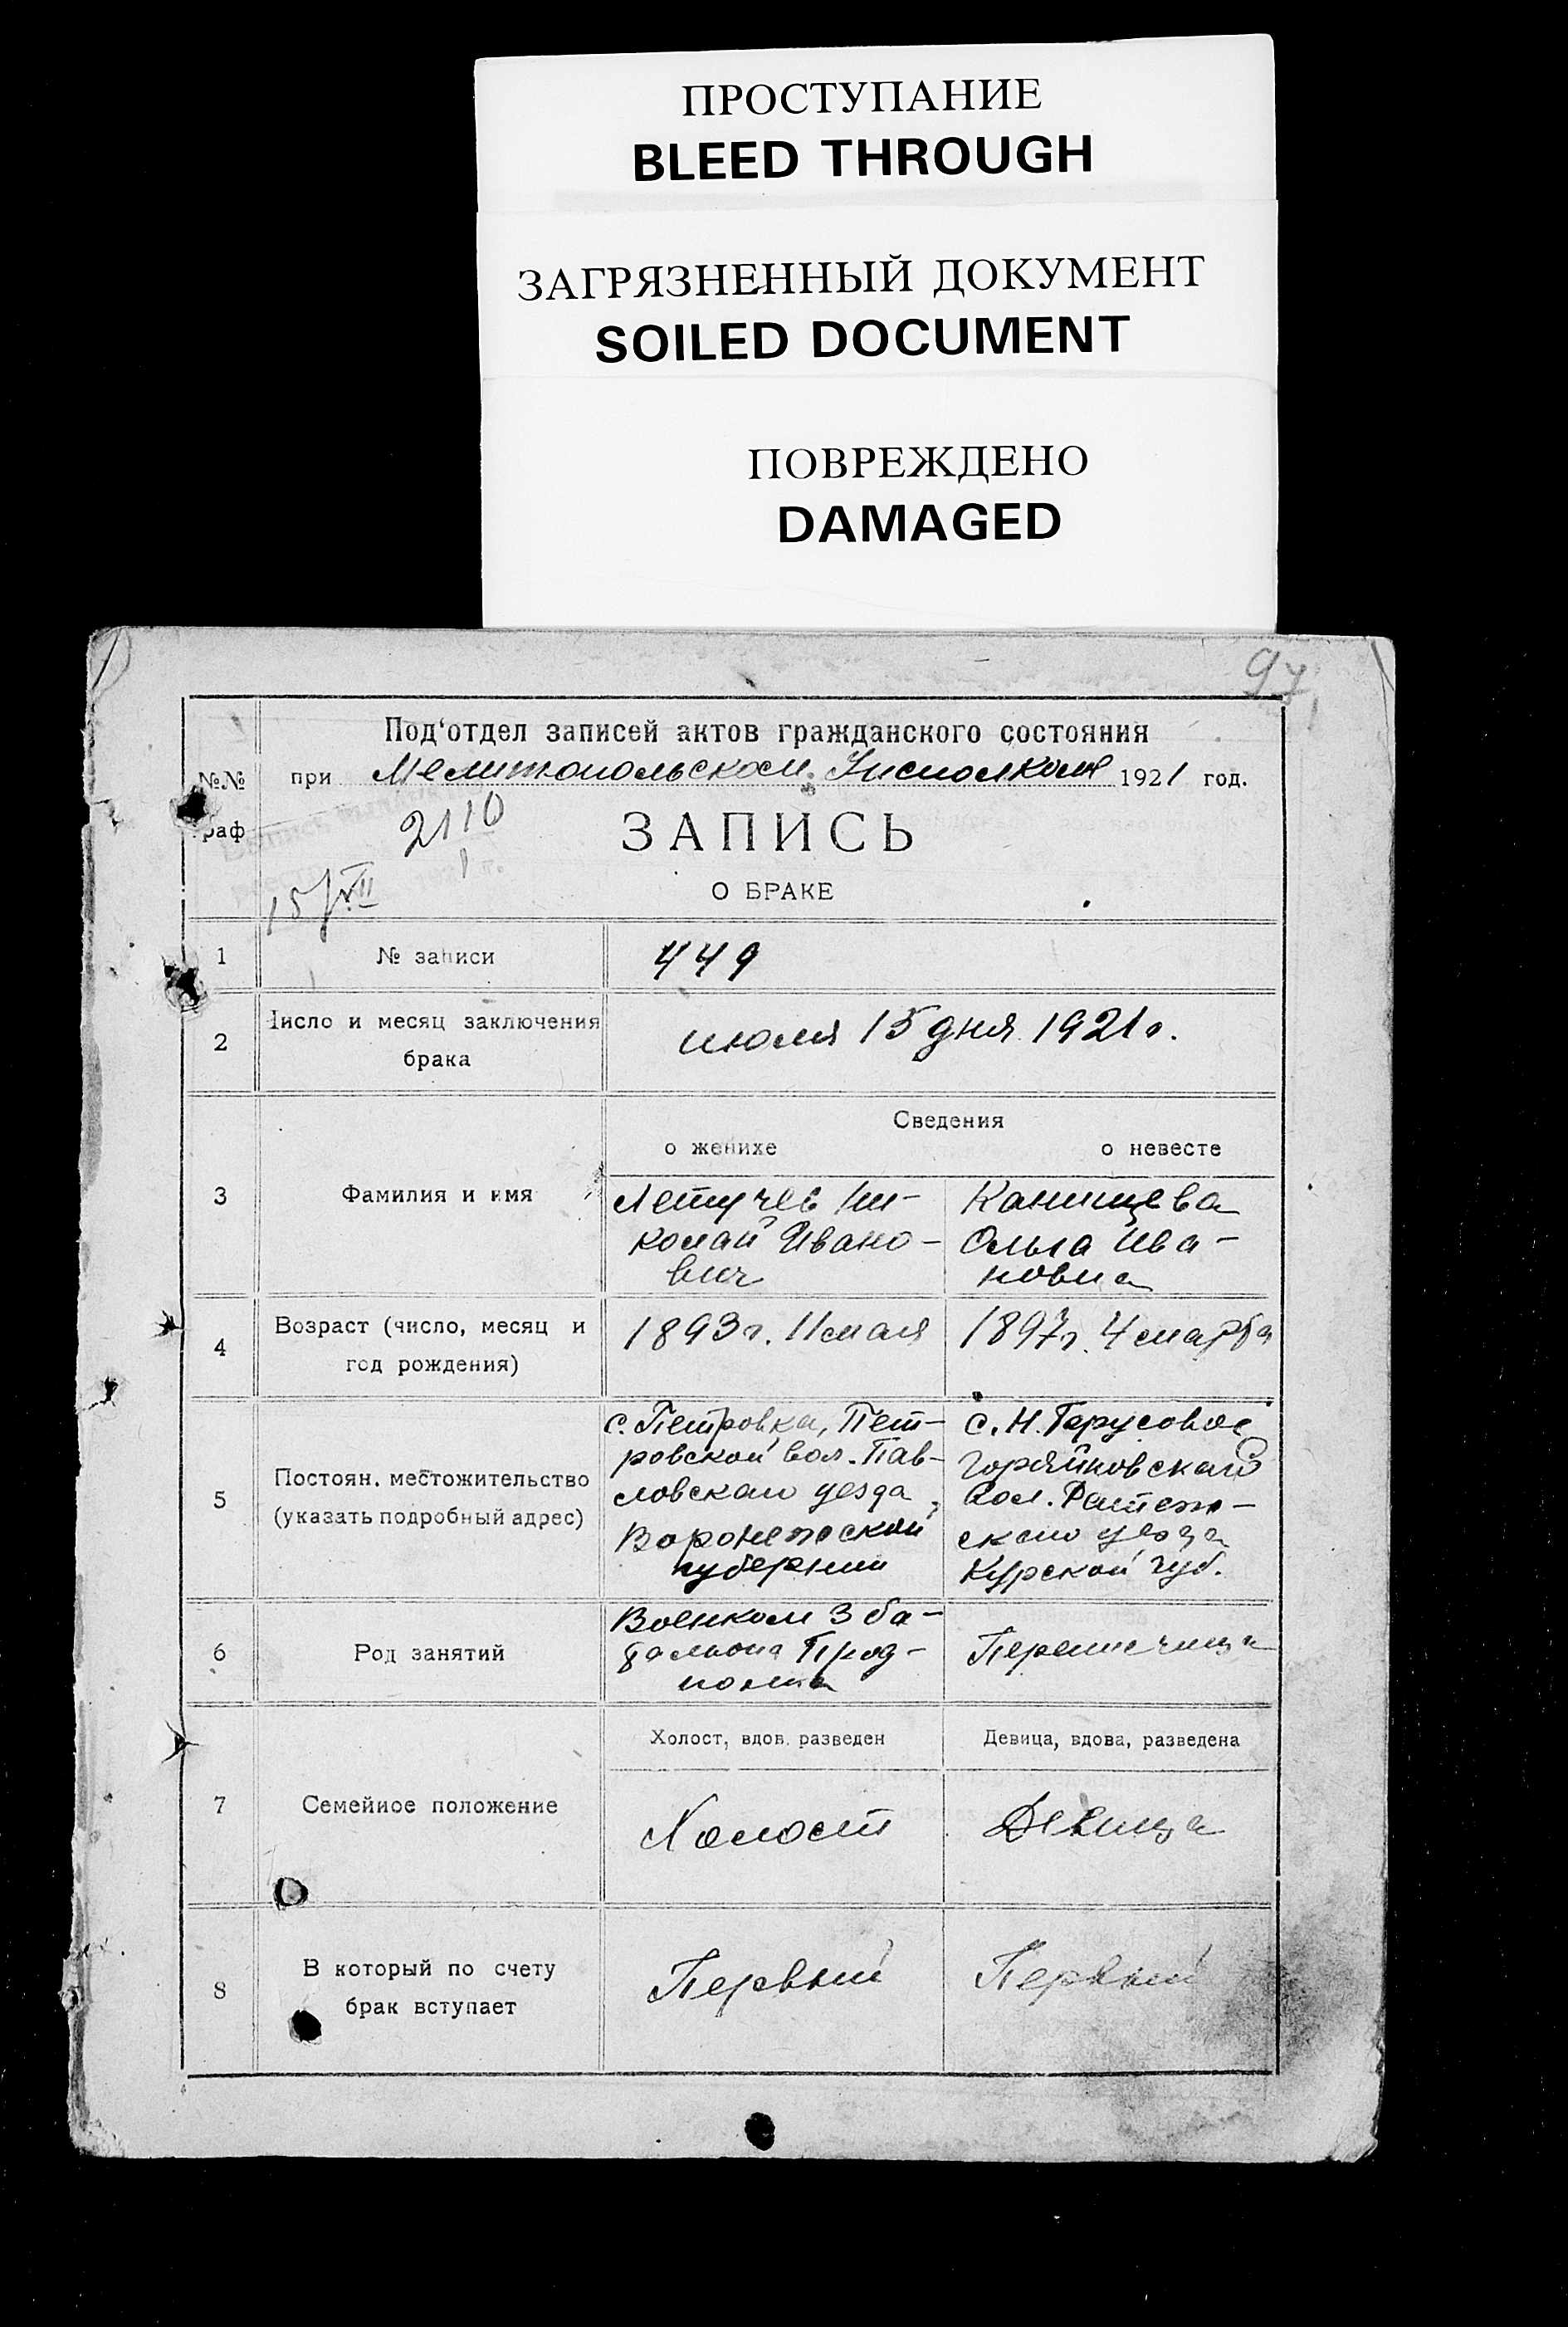 ПРОСТУПАНИЕ
BLEED THROUGH
ЗАГРЯЗНЕННЫЙ ДОКУМЕНТ
SOILED DOCUMENT
ПОВРЕЖДЕНО
DAMAGED
97
Под'отдел записей актов гражданского состояния
№№
раф
при Мелитопольском Уисполкоме 1921 год.
2110
ЗАПИСЬ
О БРАКЕ
15/VII
1
№ записи
449
2
Число и месяц заключения
брака
июля 15 дня 1921 г.
Сведения
о женихе
о невесте
3
Фамилия и имя
Летучев Ни-
колай Ивано-
вич
Канищева
Ольга Ива-
новна
4
Возраст (число, месяц и
год рождения)
1893 г. 11 мая
1897 г. 4 марта
5
Постоян. местожительство
(указать подробный адрес)
с. Петровка, Пет-
ровской вол. Пав-
ловского уезда,
Воронежской
губернии
с. Н. Герусовое
вол.
уезда
Курской губ.
6
Род занятий
Военком 3 ба-
тальона Прод-
полка
Переписчица
7
Семейное положение
Холост, вдов. разведен
Девица, вдова, разведена
Холост
Девица
8
В который по счету
брак вступает
Первый
Первый